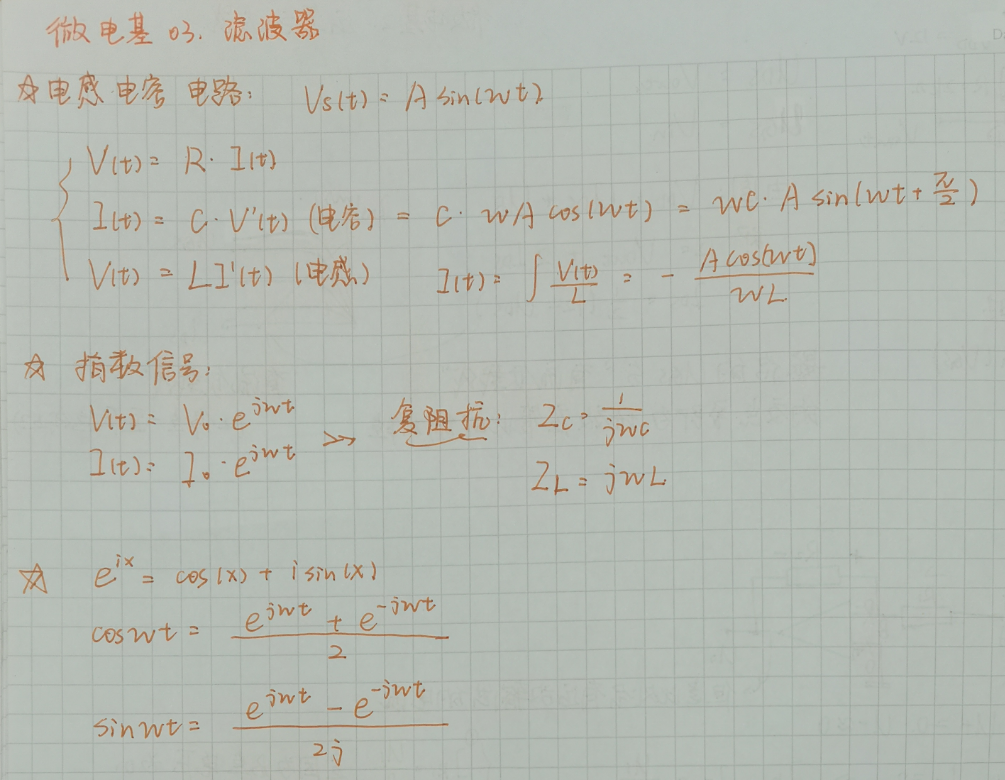 微电基 03. 滤波器
☆ 电感 电容 电路: Vs(t) = A sin(wt).
V(t) = R · I(t)
I(t) = C · V'(t) (电容) = C · wA cos(wt) = wC · A sin(wt + π/2)
V(t) = LI'(t) (电感) I(t) = ∫ V(t)/L = - A cos(wt)/wL
☆ 指数信号:
V(t) = V₀ · e^{jwt}
I(t) = I₀ · e^{jwt} >> 复阻抗: Zc = 1/jwC
ZL = jwL
☆ e^{ix} = cos(x) + i sin(x)
cos wt = (e^{jwt} + e^{-jwt})/2
sin wt = (e^{jwt} - e^{-jwt})/2j